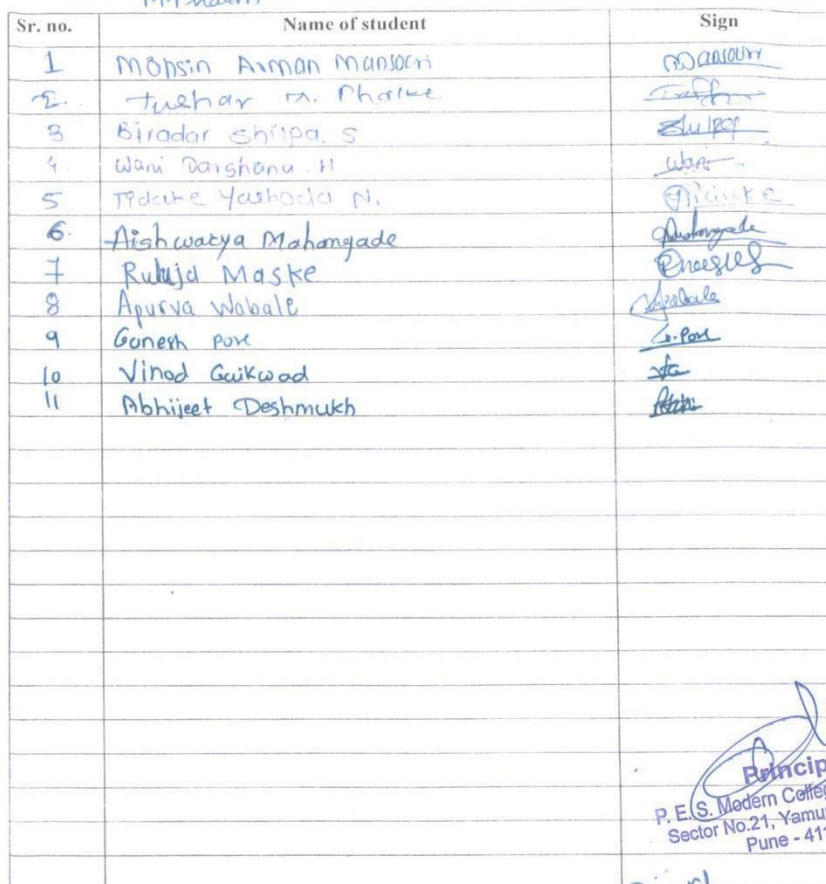 Sr. no. Name of student Sign
1 Mohsin Arman Mansoori Mansouri
2. Tushar M. Phalke
3 Biradar Shilpa. S Shilpa
4. Wani Darshana. H Wani
5 Tidake Yashoda N. Tidake
6. Aishwarya Mahangade
7 Rutuja Maske
8 Apurva Wabale
9 Ganesh Pore G.Pore
10 Vinod Gaikwad
11 Abhijeet Deshmukh
Princip
P. E. S. Modern Colleg
Sector No.21, Yamu
Pune - 411